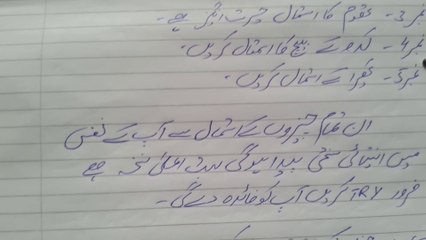 نمبر 3- کا استعمال حیرت انگیز ہے۔
نمبر 4- کدو کے بیج کا استعمال کریں۔
نمبر 5- استعمال کریں۔
ان تمام چیزوں کے استعمال سے آپ کے نفس
میں انتہائی سختی پیدا ہوگی بہت اعلیٰ نسخہ ہے
ضرور TRY کریں آپ کو فائدہ دے گی۔